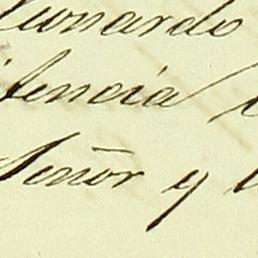 Leonardo
tencia
Señor y